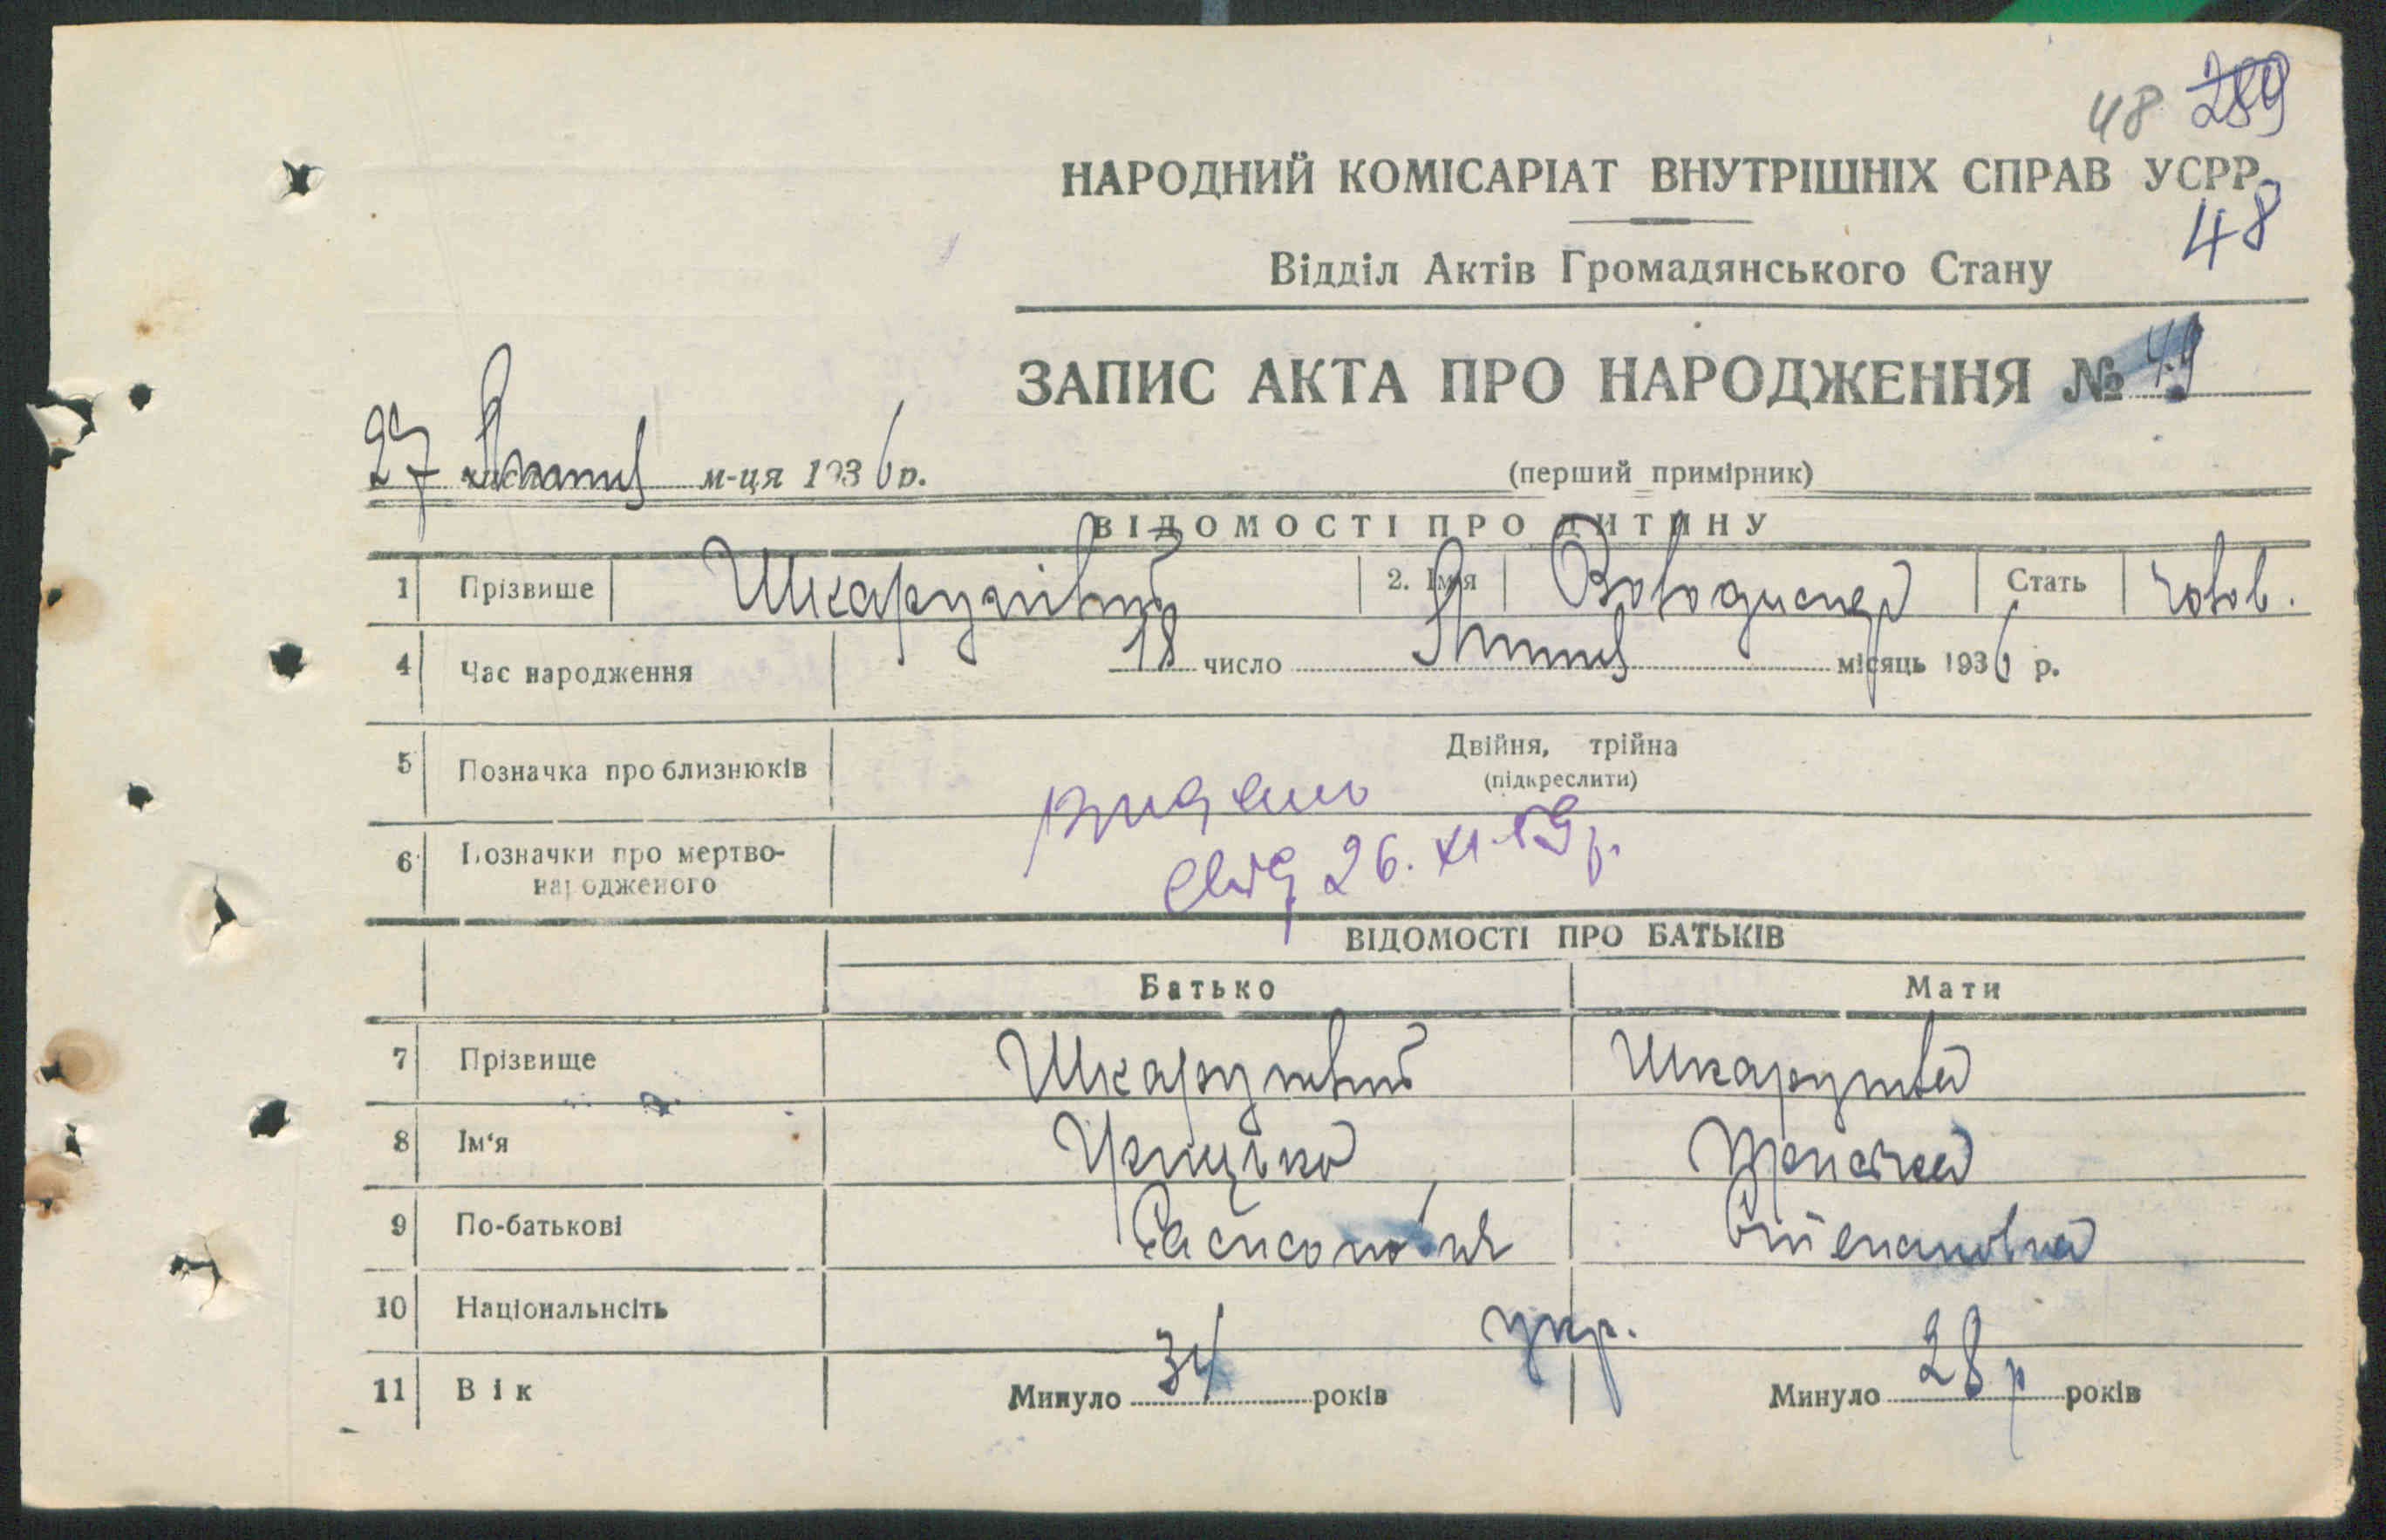 48 289
НАРОДНИЙ КОМІСАРІАТ ВНУТРІШНІХ СПРАВ УСРР.
48
Відділ Актів Громадянського Стану
ЗАПИС АКТА ПРО НАРОДЖЕННЯ № 49
27 м-ця 1936 р.
(перший примірник)
ВІДОМОСТІ ПРО ДИТИНУ
1 Прізвище 2. Імя Володимер Стать чолов.
4 Час народження 18 число місяць 1936 р.
5 Позначка про близнюків Двійня, трійна
(підкреслити)
видано
6 Позначки про мертво-
народженого
свід 26. XI. 59 р.
ВІДОМОСТІ ПРО БАТЬКІВ
Батько Мати
7 Прізвище
8 Ім'я
9 По-батькові Степановна
10 Національнсіть укр.
11 Вік Минуло 34 років Минуло 28 р років